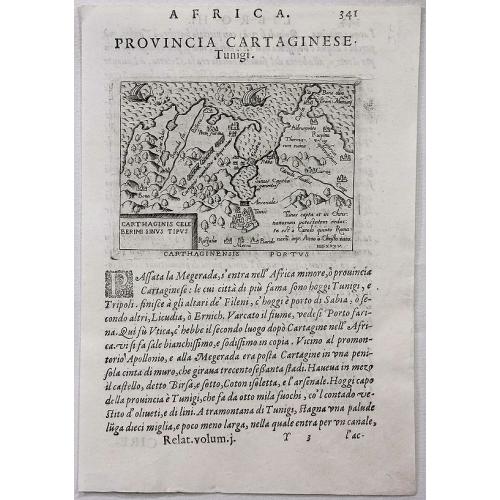 AFRICA. 341
PROVINCIA CARTAGINESE.
Tunigi.
CARTHAGINIS CELE
BERIMI SINVS TIPVS
Tunes capta et in Christ
CARTHAGINENSIS PORTVS
PAssata la Megerada, s'entra nell'Africa minore, ò prouincia
Cartaginese: le cui città di più fama sono hoggi Tunigi, e
Tripoli. finisce à gli altari de' Fileni, c' hoggi è porto di Sabia, ò se-
condo altri, Licudia, ò Ernich. Varcato il fiume, vedesi Porto fari-
na. Quì fù Vtica, c' hebbe il secondo luogo dopò Cartagine nell'Afri-
ca. vi si fa sale bianchissimo, e sodissimo in copia. Vicino al promon-
torio Apollonio, e alla Megerada era posta Cartagine in vna peni-
sola cinta di muro, che giraua trecento sessanta stadi. Haueua in mezo
il castello, detto Birsa, e sotto, Coton isoletta, e l'arsenale. Hoggi capo
della prouincia è Tunigi, che fa da otto mila fuochi, co'l contado ve-
stito d'oliueti, e di lini. A tramontana di Tunigi, stagna vna palude
lũga dieci miglia, e poco meno larga, nella quale entra per vn canale,
Relat. volum. j. Y 3 l'ac-